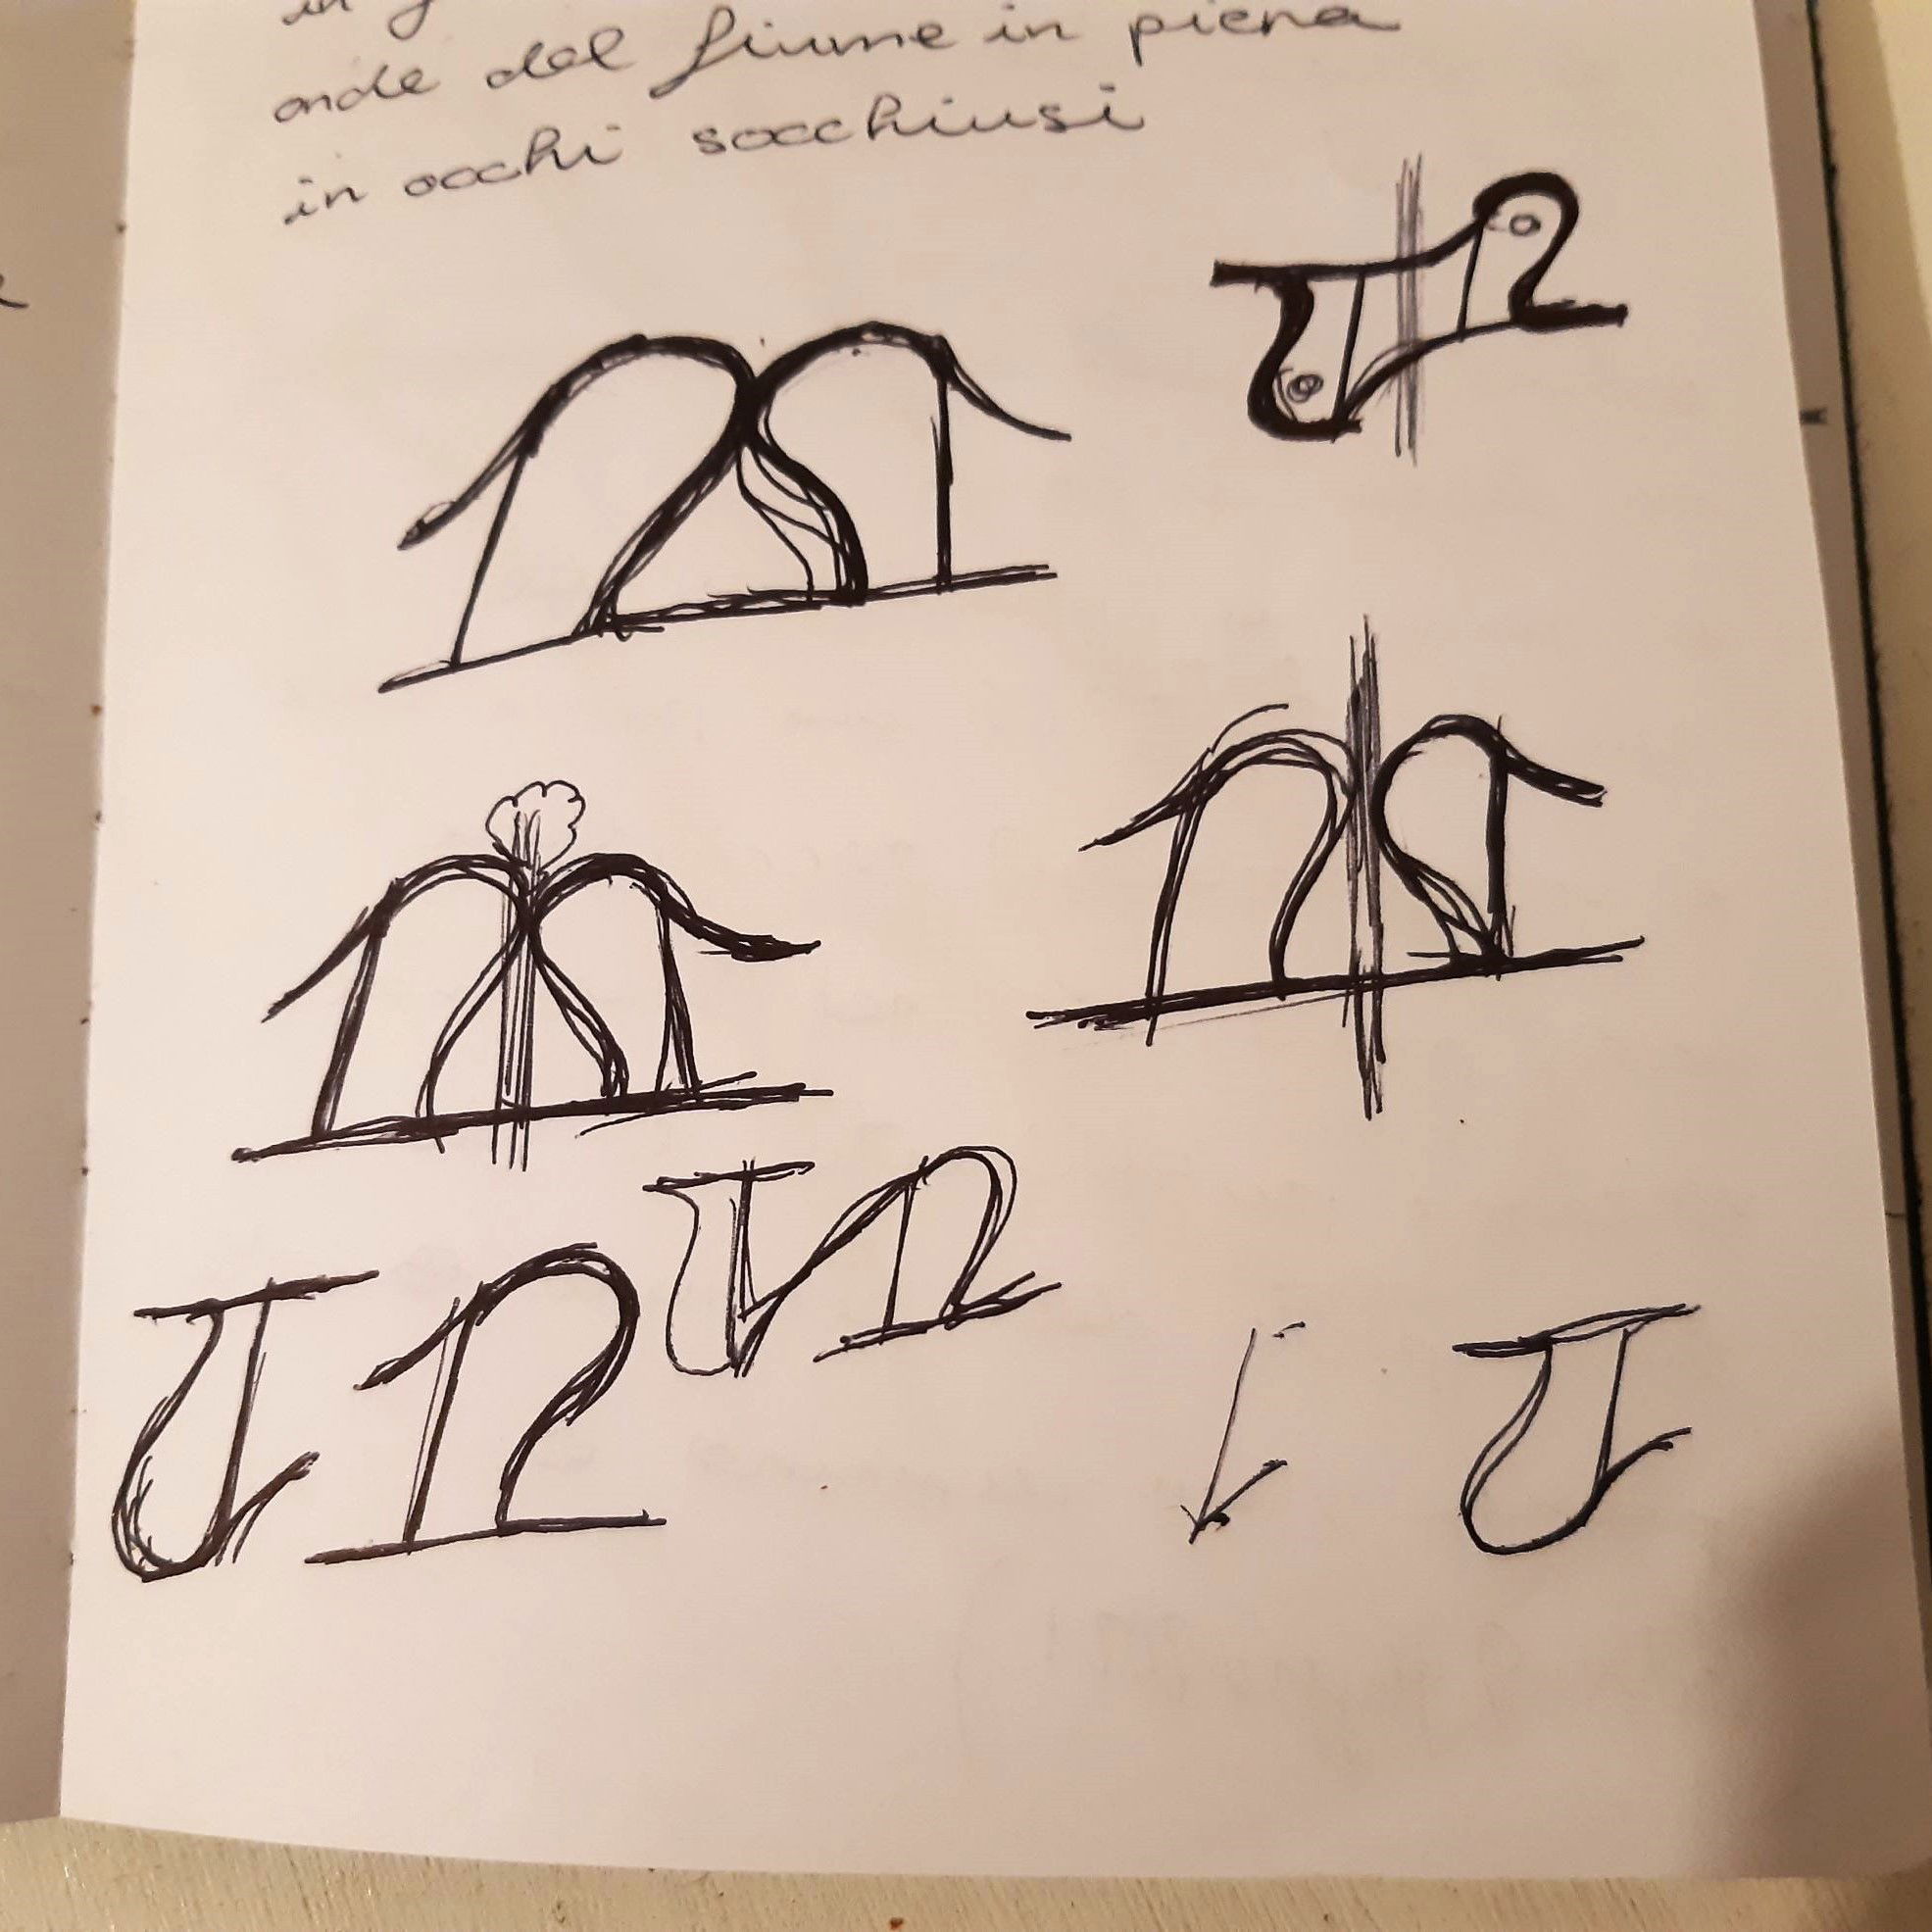 in
onde del fiume in piena
in occhi socchiusi